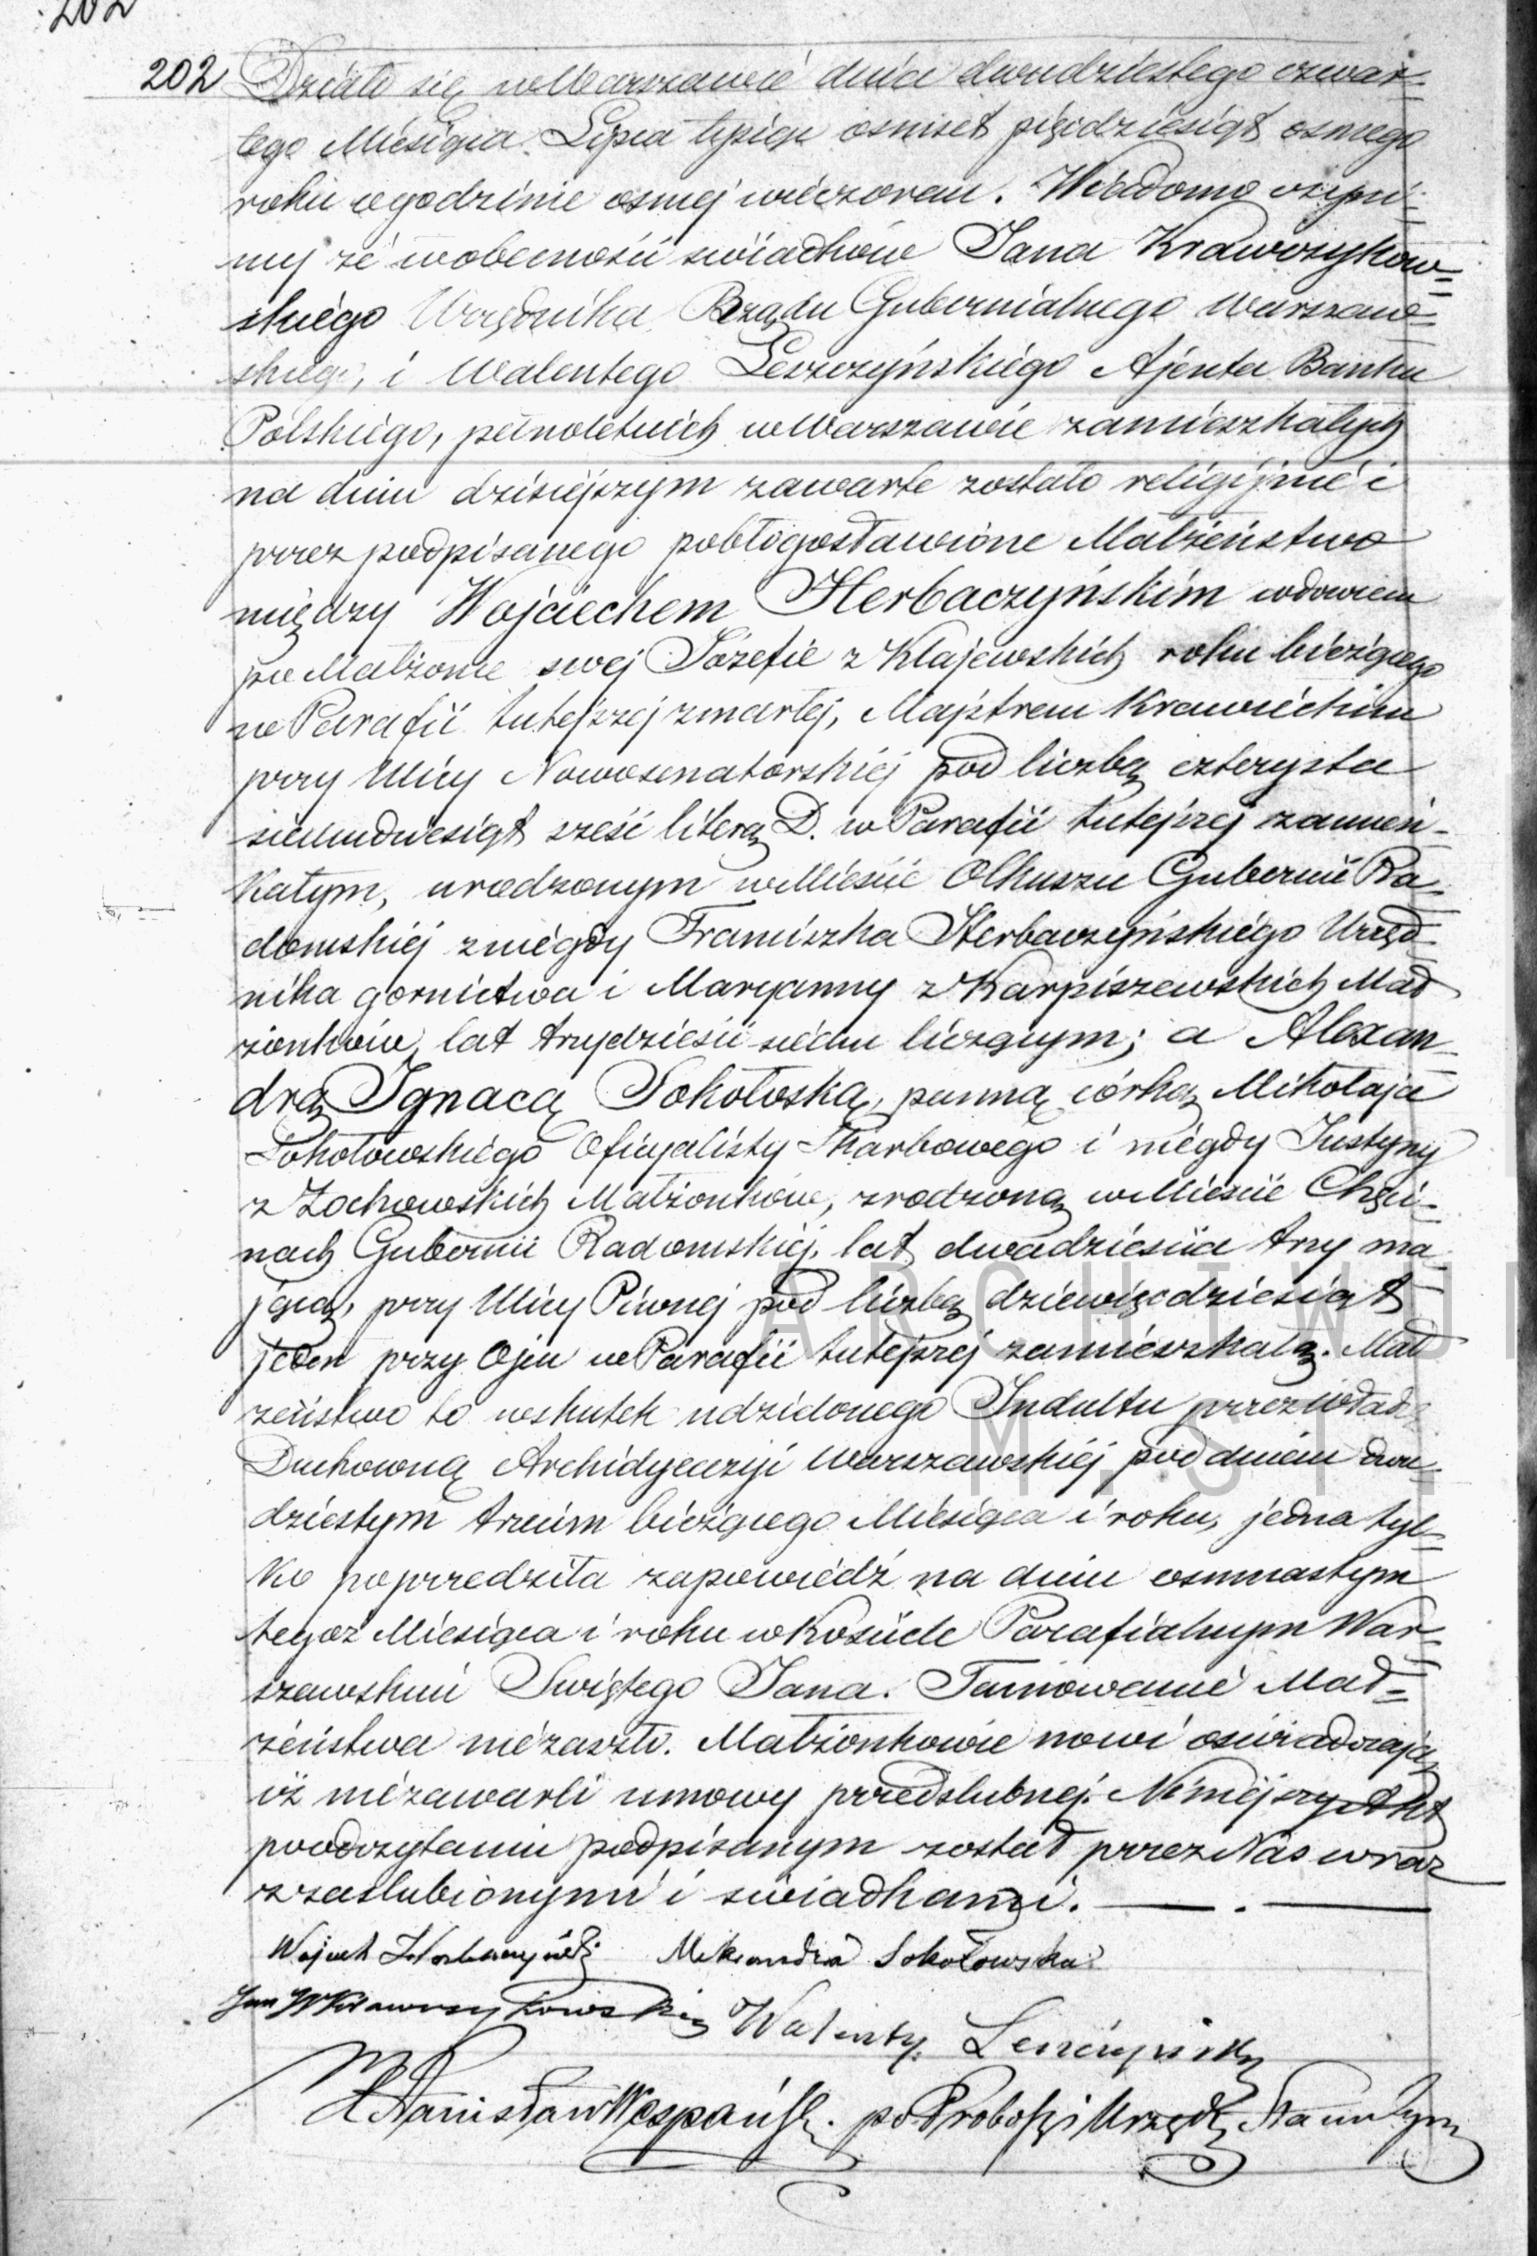 202
202 Działo się w Warszawie dnia dwudziestego czwar=
tego Miesiąca Lipca tysiąc osmset pięćdziesiąt osmego
roku o godzinie osmej wieczorem. Wiadomo czyni=
my że wobecności świadków Jana Krawczykow=
skiego Urzędnika Rządu Gubernialnego Warszaw=
skiego, i Walentego Leszczyńskiego Ajenta Banku
Polskiego, pełnoletnich w Warszawie zamieszkałych
na dniu dzisiejszym zawarte zostało religijnie i
przez podpisanego pobłogosławione Małżeństwo
między Wojciechem Herbaczyńskim wdowcem
po Małżonce swej Józefie z Klajewskich roku bieżącego
w Parafii tutejszej zmarłej, Majstrem Krawieckim
przy Ulicy Nowosenatorskiej pod liczbą czterysta
siedmdziesiąt sześć literą D. w Parafii tutejszej zamiesz=
kałym, urodzonym w Mieście Olkuszu Gubernii Ra=
domskiej z niegdy Franciszka Herbaczyńskiego Urzęd=
nika gornictwa i Maryanny z Karpiszewskich Mał
żonków, lat trzydzieści siedm liczącym; a Alexan=
drą Ignacą Sokołoską, panną córką Mikołaja
Sokołowskiego Oficyalisty Skarbowego i niegdy Justyny
z Żochowskich Małżonków, zrodzoną w Mieście Chęci=
nach Gubernii Radomskiej, lat dwadzieścia trzy ma=
jącą, przy Ulicy Piwnej pod liczbą dziewięćdziesiąt
jeden przy Ojcu w Parafii tutejszej zamieszkałą. Mał
żeństwo to wskutek udzielonego Indultu przez Wład=
Duchowną Archidyecezyi Warszawskiej pod dniem dwu=
dziestym trzecim bieżącego Miesiąca i roku, jedna tyl=
ko poprzedziła zapowiedź na dniu osmnastym
tegoż Miesiąca i roku w Kościele Parafialnym War=
szawskim Świętego Jana. Tamowanie Mał=
żeństwa niezaszło. Małżonkowie nowi oświadczają
iż niezawarli umowy przedslubnej. Niniejszy Akt
poodczytaniu podpisanym został przez Nas wraz
z zaslubionymi i świadkami. — . —
Wojciech Herbaczyński Aleksandra Sokołowska
Jan Krawczykowski Walenty Leszczyński
X Stanisław po Probosz i Urzęd. Stanu Cyw
ARCHIWU
M.ST.